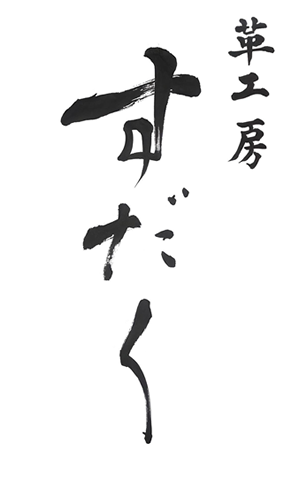 革工房
すだく